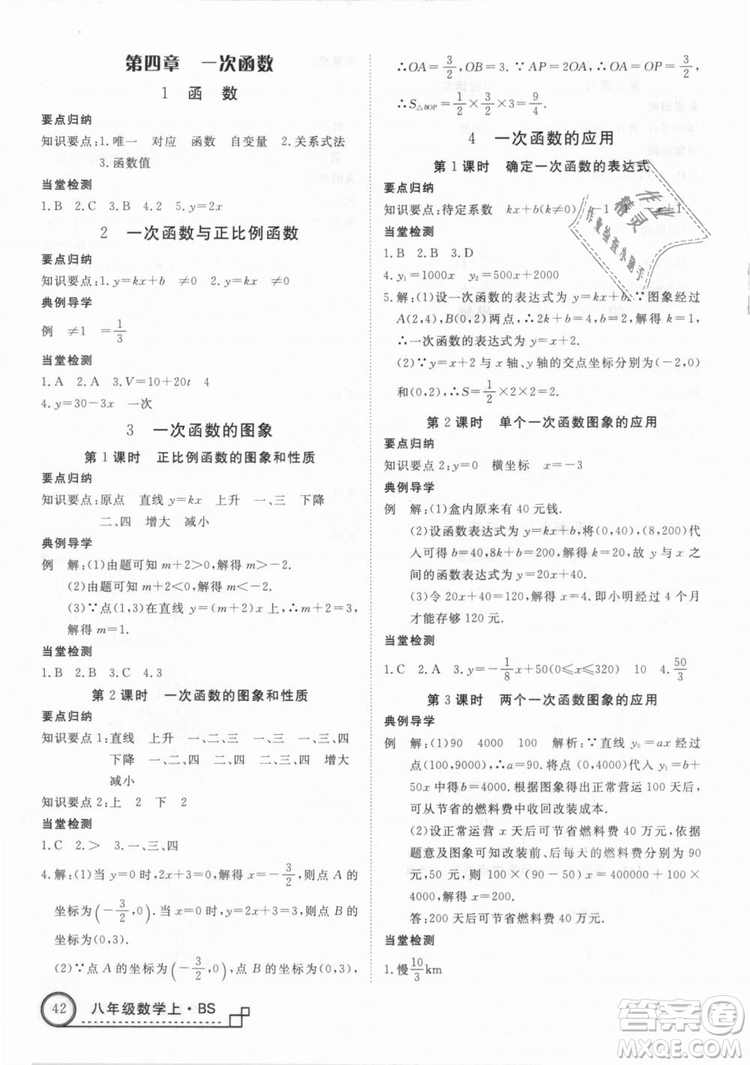 第四章 一次函数
1 函 数
要点归纳
知识要点:1.唯一 对应 函数 自变量 2.关系式法
3.函数值
当堂检测
1.B 2.C 3.B 4.2 5.17
2 一次函数与正比例函数
要点归纳
知识要点:1.y=kx+b 2.y=kx
典例导学
例 ≠1 =1/3
当堂检测
1.A 2.A 3.V=10+20t 4
4.y=30-3x 一次
3 一次函数的图象
第1课时 正比例函数的图象和性质
要点归纳
知识要点:原点 直线 y=kx 上升 一、三 下降
二、四 增大 减小
典例导学
例 解:(1)由题可知m+2>0,解得m>-2.
(2)由题可知m+2<0,解得m<-2.
(3)∵点(1,3)在直线y=(m+2)x上,∴m+2=3,
解得m=1.
当堂检测
1.B 2.B 3.D 4.3
第2课时 一次函数的图象和性质
要点归纳
知识要点1:直线 上升 一、二、三 一、三、四
下降 一、二、四 二、三、四 增大
减小
知识要点2:上 2 下 2
当堂检测
1.C 2.> 3.一、三、四
4.解:(1)当y=0时,2x+3=0,x=-3/2,则点A的
坐标为(-3/2,0),当x=0时,y=3,则点B的
坐标为(0,3).
(2)∵点A的坐标为(-3/2,0),点B的坐标为(0,3),
42 八年级数学上·BS
∴OA=3/2,OB=3.又∵OP=OA,∴OP=3/2,
∴S△BOP=1/2×3/2×3=9/4.
4 一次函数的应用
第1课时 确定一次函数的表达式
要点归纳
知识要点:待定系数 kx+b(k≠0)
当堂检测
1.B 2.B 3.D
4.y₁=1000x y₂=500x+2000
5.解:(1)设一次函数的表达式为y=kx+b.∵图象经过
A(2,4),B(0,2)两点,∴2k+b=4,b=2,∴k=1,
∴一次函数的表达式为y=x+2.
(2)∵y=x+2与x轴、y轴的交点坐标分别为(-2,0)
和(0,2),∴S=1/2×2×2=2.
第2课时 单个一次函数图象的应用
要点归纳
知识要点:2.y=0 横坐标 x=-3
典例导学
例 解:(1)盒内原来有40元钱.
(2)设函数表达式为y=kx+b,将(0,40),(8,200)代
入可得b=40,8k+b=200,解得k=20.即y与x之
间的函数关系式为y=20x+40.
(3)令20x+40=120,解得x=4.即小明经过4个月
才能存够120元.
当堂检测
1.C 2.A 3.d=-1/8x+50(0≤x≤320) 10 4.50/3
第3课时 两个一次函数图象的应用
典例导学
例 解:(1)90 4000 100 解析:∵直线y₀=ax过点
(100,9000),∴a=90;将点(0,4000)代入y₁=bx+
4000,得b=50.根据图象正常运营100天后从
可从节省的燃料费中收回改装成本.
(2)设正常运营x天后可节省燃料费40万元,依据
题意及图可知改装前、后的燃料费每天分别为90
元,50元,则(90-50)x=400000+4000,解得x=
答:200天后节省燃料费40万元.
当堂检测
1.慢10/3km
作业
精灵
作业检查小助手
答案圈
MXQE.COM